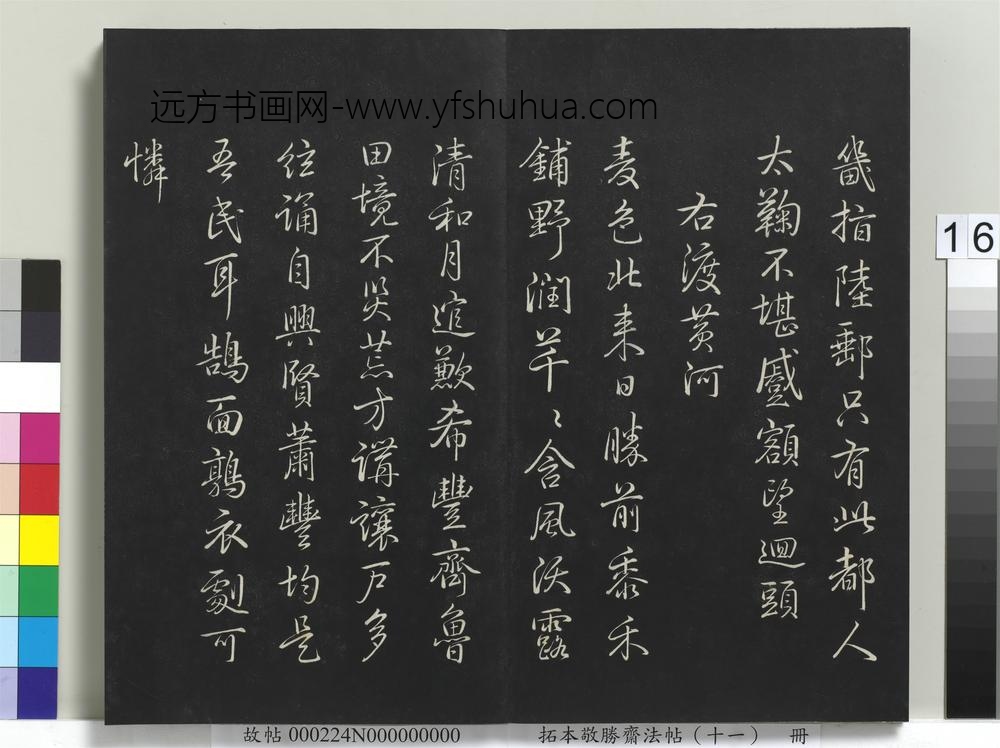 远方书画网-www.yfshuhua.com
幾指陸郵只有此都人
太鞠不堪蹙額望迴頭
右渡黃河
麦色北来日勝前黍禾
鋪野潤芊〻含風沃露
清和月遠歉希豐齊魯
田境不災荒才講讓戶多
絃誦自興賢蕭豐均是
吾民耳鵠面鶉衣劇可
憐
16
故帖 000224N000000000 拓本敬勝齋法帖（十一） 冊